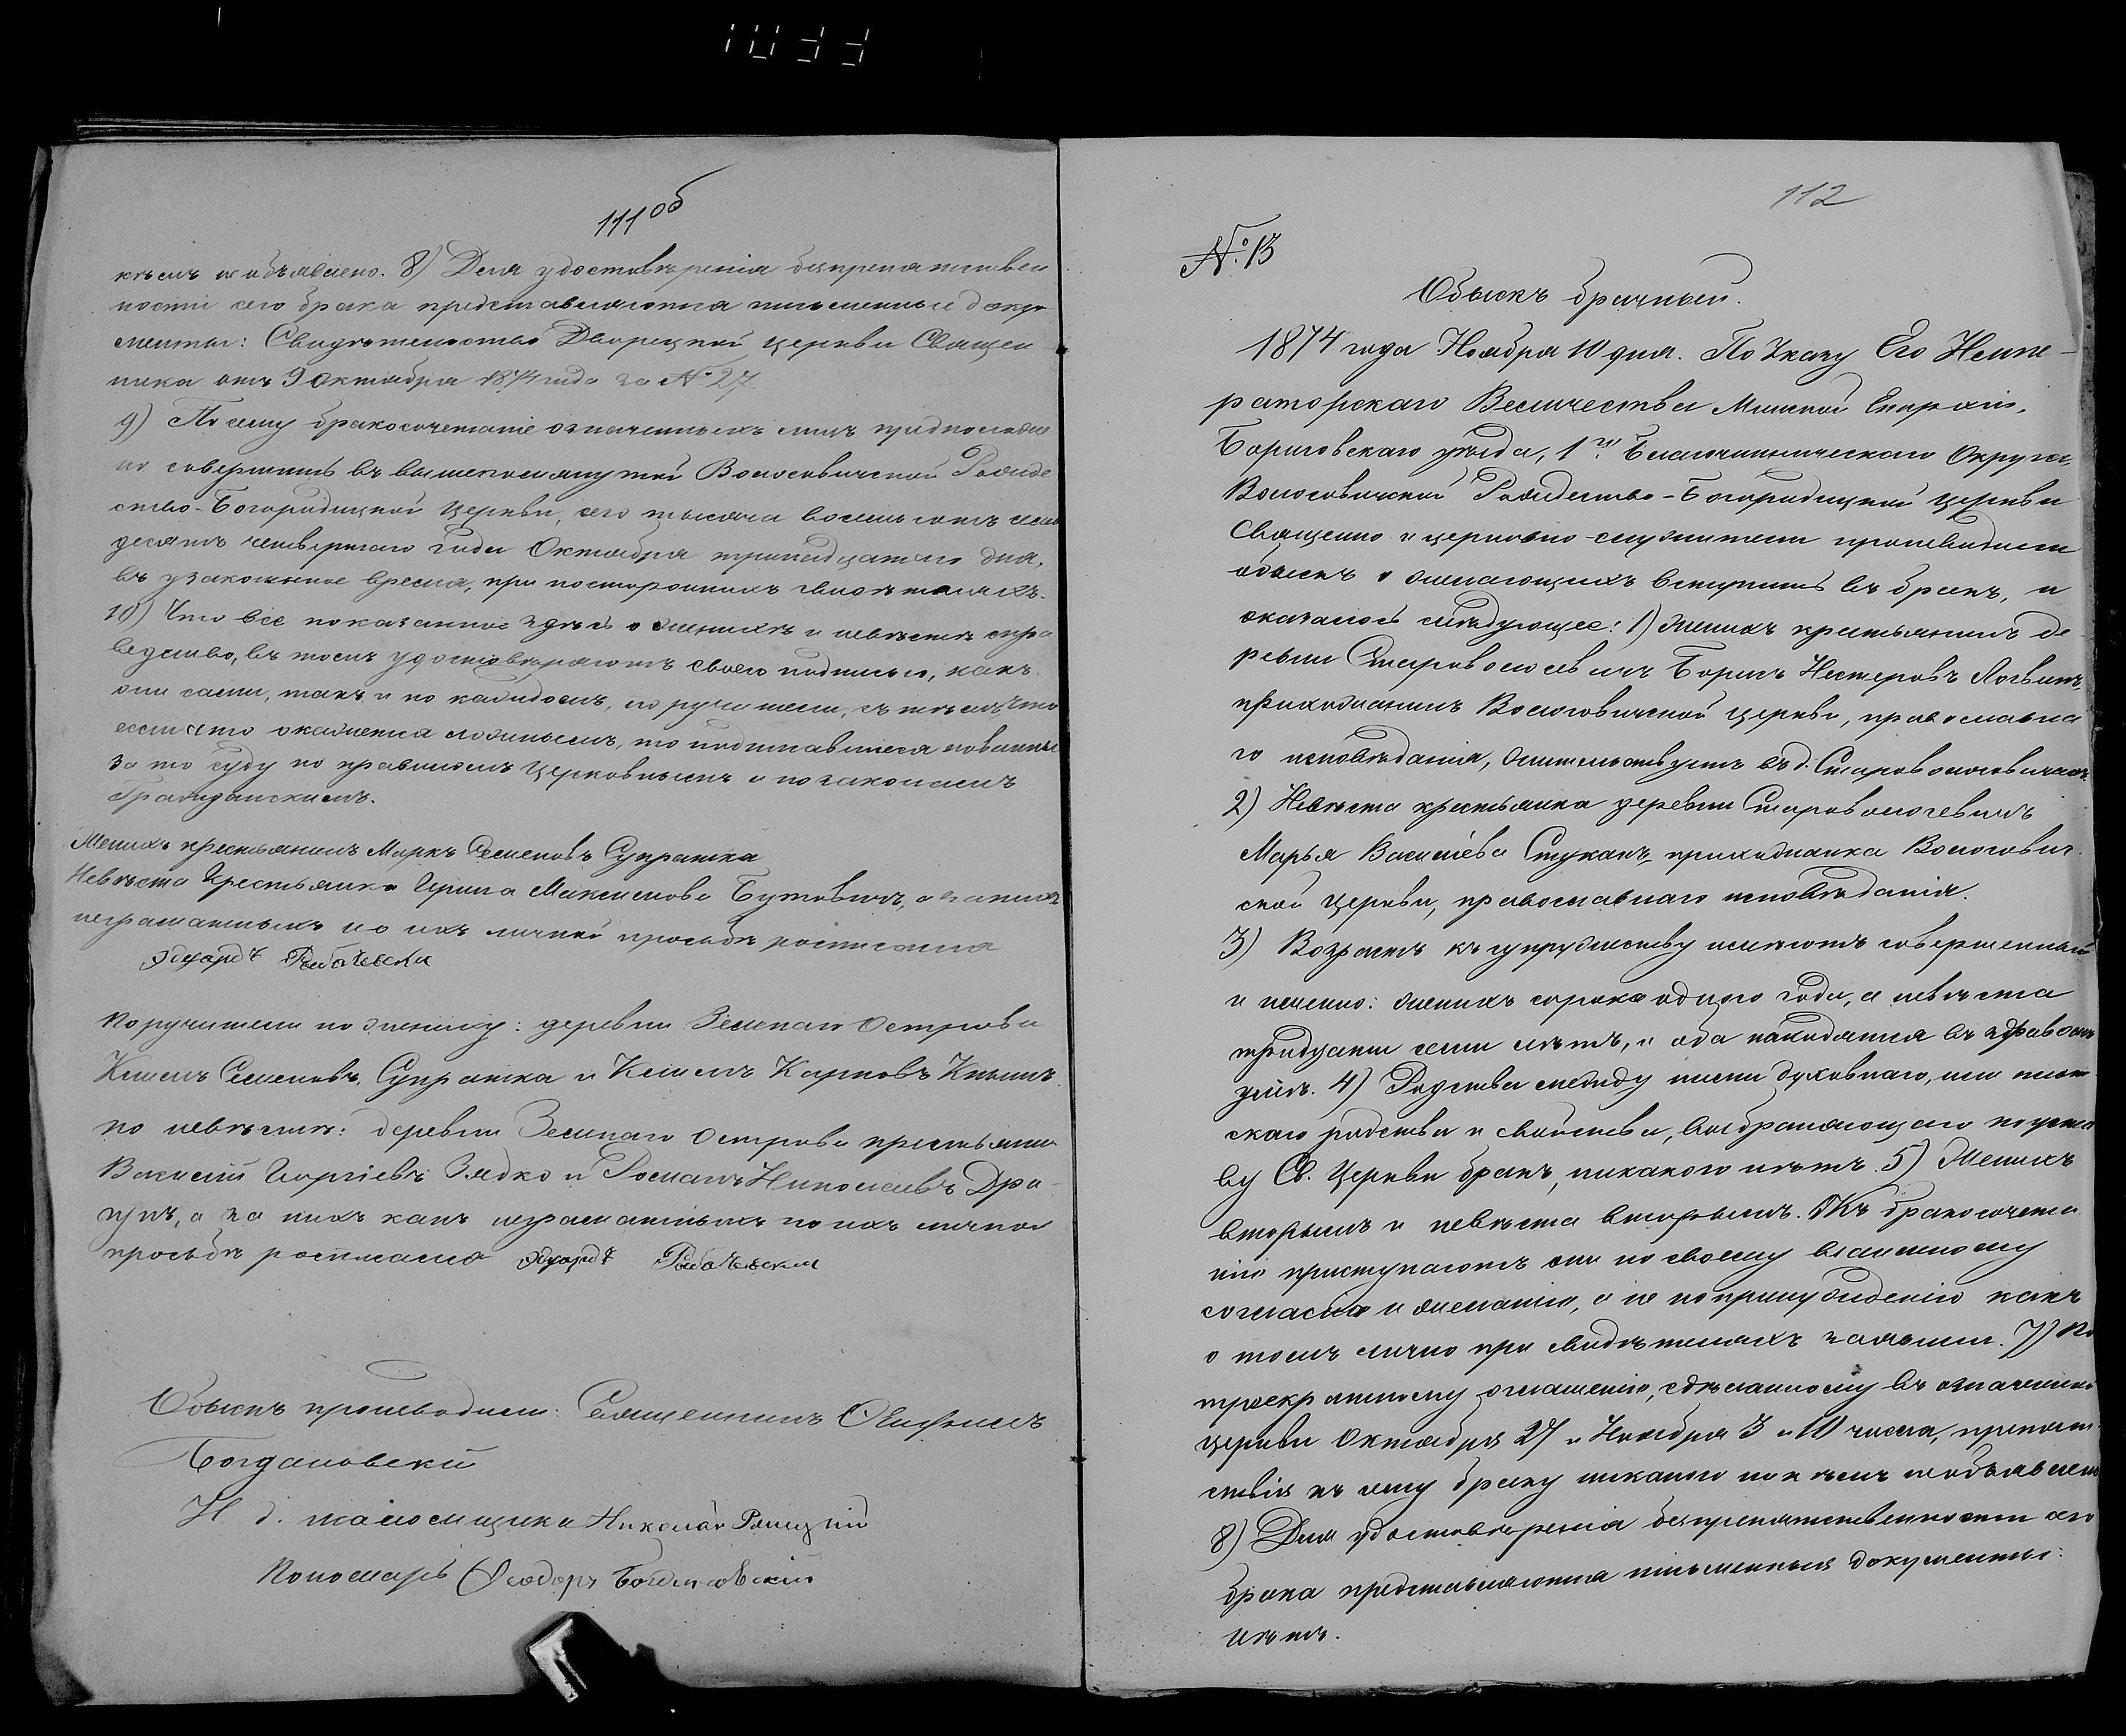 111 об
кѣмъ не объявлено. 8) Для удостовѣренія безпрепятствен
ности сего брака представляются письменные доку-
менты: Свидѣтельство Дворецкой церкви Священ
ника отъ 9 Октября 1874 года за № 27.
9) По сему бракосочетаніе означенныхъ лицъ предположе
но совершить въ вышепомянутой Волосевичской Рожде
ство-Богородицкой церкви, сего тысяча восемьсотъ семь
десятъ четвертаго года Октября тринадцатаго дня,
въ узаконенное время, при постороннихъ свидѣтеляхъ.
10) Что все показанное здѣсь о женихѣ и невѣстѣ спра
ведливо, въ томъ удостовѣряютъ своею подписью, какъ
они сами, такъ и по каждомъ, поручители, съ тѣмъ что
если что окажется ложнымъ, то подписавшіеся повинны
за то суду по правиламъ Церковнымъ и по законамъ
Гражданскимъ.
Женихъ крестьянинъ Маркъ Семеновъ Супратка
Невѣста Крестьянка Ирина Максимова Бутовичъ, а за нихъ
неграматныхъ по ихъ личной просьбѣ росписался
Эдуардъ
Поручители по жениху: деревни Зеленаго Острова
Климъ Семеновъ Супратка и Климъ Карповъ
по невѣстѣ: деревни Зеленаго Острова крестьяне
Василій Георгіевъ Зядко и Романъ Николаевъ Дра-
а за нихъ какъ неграматныхъ по ихъ личной
просьбѣ росписался Эдуардъ
Обыскъ производили: Священникъ
Богдановскій
И. д. псаломщика Николай
Пономарь Ѳеодоръ Богдановскій
112
№. 13
Обыскъ брачный.
1874 года Ноября 10 дня. По Указу Его Импе-
раторскаго Величества Минской Епархіи,
Борисовскаго уѣзда, 1го Благочинническаго Округа,
Волосовичской Рождество-Богородицкой церкви
Священно и церковно-служители производили
обыскъ о желающихъ вступить въ бракъ, и
оказалось слѣдующее: 1) Женихъ крестьянинъ де
ревни Староволосевичъ Борисъ Нестеровъ
прихожанинъ Волосовичской церкви, православна
го исповѣданія, жительствуетъ въ д. Староволосовичахъ.
2) Невѣста крестьянка деревни Староволосевичъ
Марья Васильева Стукачъ, прихожанка Волосович
ской церкви, православнаго исповѣданія.
3) Возрастъ къ супружеству имѣютъ совершенный
и именно: женихъ сорока одного года, а невѣста
тридцати семи лѣтъ, и оба находятся въ здравомъ
умѣ. 4) Родства между ними духовнаго, или плот
скаго родства и свойства, возбраняющаго по уста
ву Св. Церкви бракъ, никакого нѣтъ. 5) Женихъ
вторымъ и невѣста вторымъ. Къ бракосочета
нію приступаютъ они по своему взаимному
согласію и желанію, а не по принужденію какъ
о томъ лично при свидѣтеляхъ заявили. 7) По
троекратному оглашенію, сдѣланному въ означенной
церкви Октября 27 и Ноября 3 и 10 числа, препят-
ствія къ сему браку никакого никѣмъ не объявлено
8) Для удостовѣренія безпрепятственности сего
брака представляются письменныя документы:
нѣтъ.